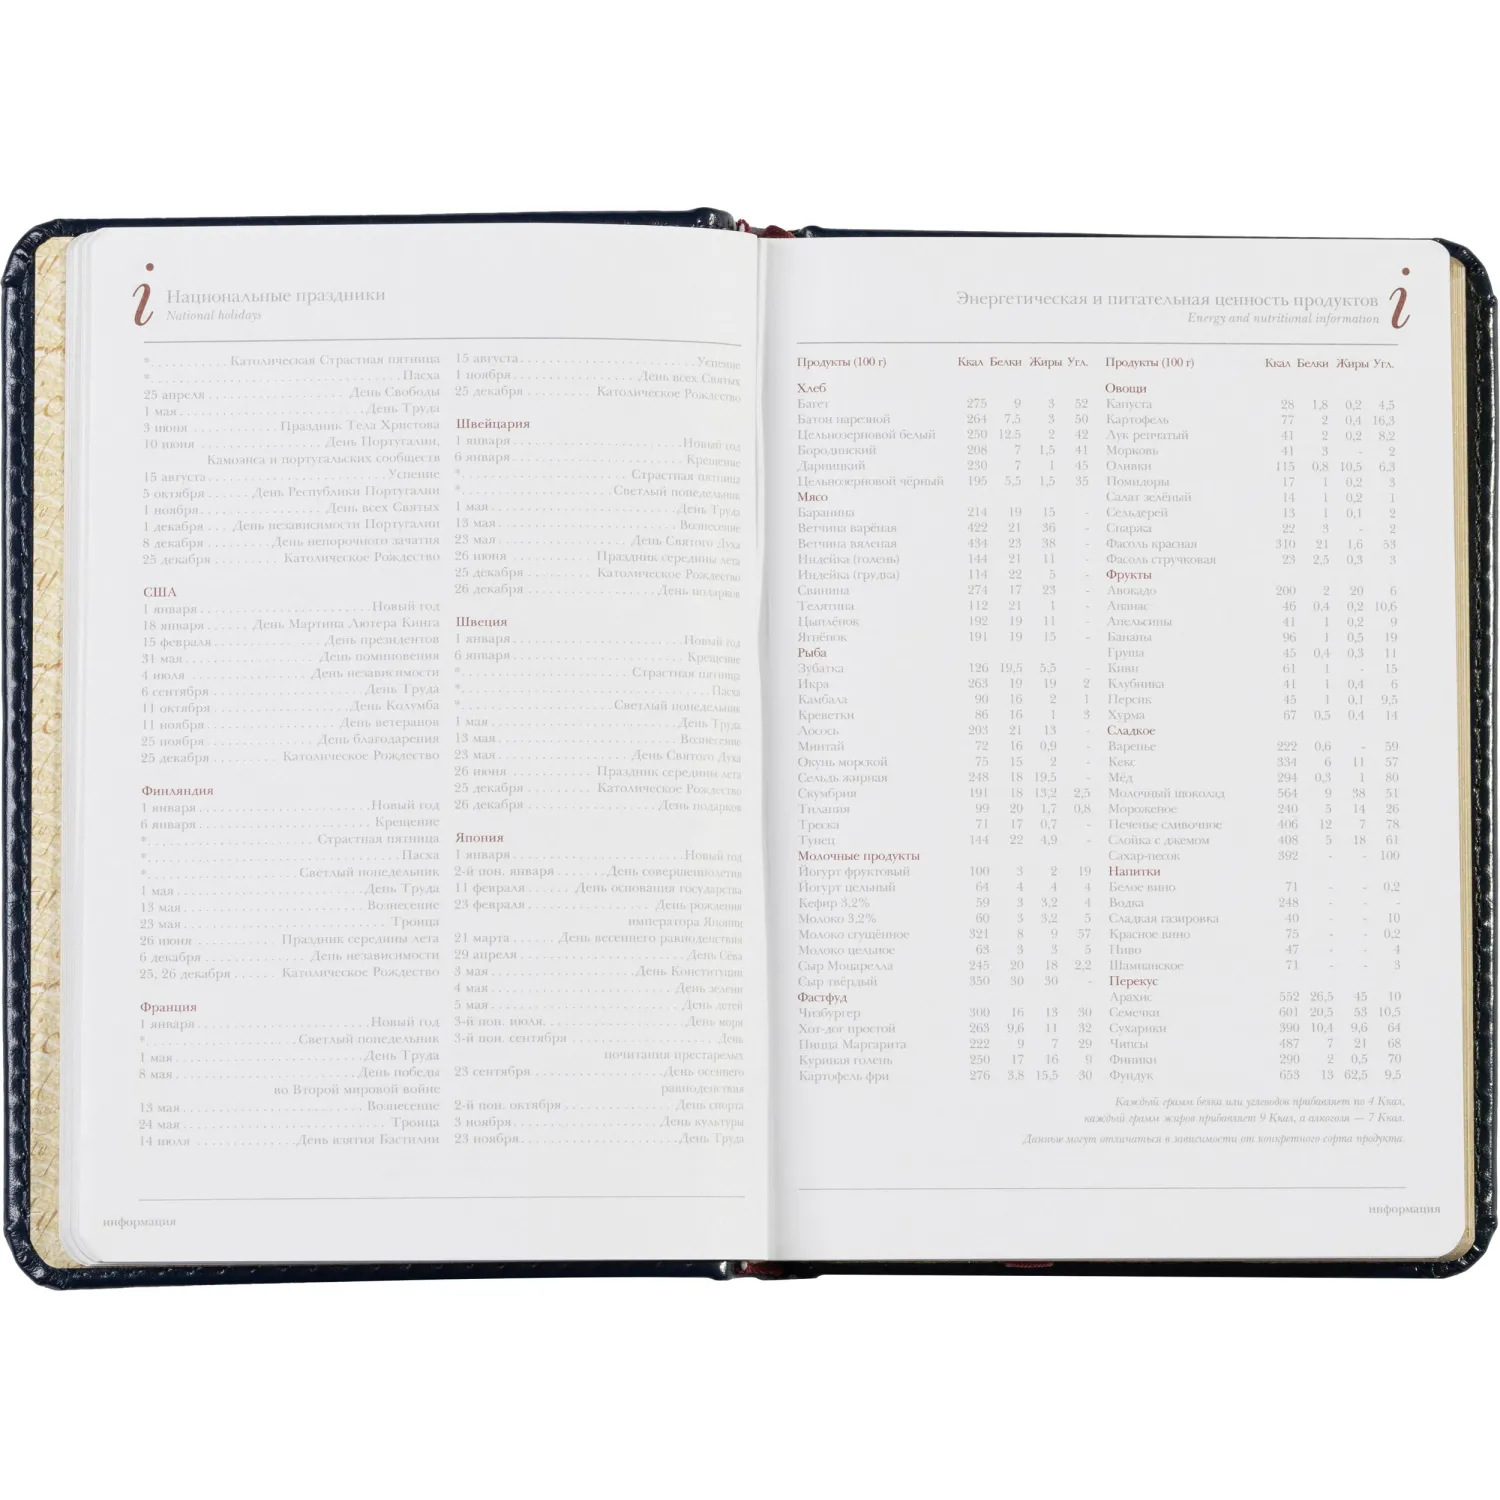 i
Национальные праздники
National holidays
* . . . . . . . . . . . Католическая Страстная пятница
* . . . . . . . . . . . Пасха
25 апреля . . . . . . . . . . . День Свободы
1 мая . . . . . . . . . . . День Труда
3 июня . . . . . . . . . . . Праздник Тела Христова
10 июня . . . . . . . . . . . День Португалии,
Камоэнса и португальских сообществ
15 августа . . . . . . . . . . . Успение
5 октября . . . . . День Республики Португалии
1 ноября . . . . . . . . . . . День всех Святых
1 декабря . . . День независимости Португалии
8 декабря . . . . . День непорочного зачатия
25 декабря . . . . . . . Католическое Рождество
США
1 января . . . . . . . . . . . Новый год
18 января . . . . . День Мартина Лютера Кинга
15 февраля . . . . . . . . . . . День президентов
31 мая . . . . . . . . . . . День поминовения
4 июля . . . . . . . . . . . День независимости
6 сентября . . . . . . . . . . . День Труда
11 октября . . . . . . . . . . . День Колумба
11 ноября . . . . . . . . . . . День ветеранов
25 ноября . . . . . . . . . . . День благодарения
25 декабря . . . . . . . Католическое Рождество
Финляндия
1 января . . . . . . . . . . . Новый год
6 января . . . . . . . . . . . Крещение
* . . . . . . . . . . . Страстная пятница
* . . . . . . . . . . . Пасха
* . . . . . . . . . . . Светлый понедельник
1 мая . . . . . . . . . . . День Труда
13 мая . . . . . . . . . . . Вознесение
23 мая . . . . . . . . . . . Троица
26 июня . . . . . . . Праздник середины лета
6 декабря . . . . . . . . . . . День независимости
25, 26 декабря . . . . . Католическое Рождество
Франция
1 января . . . . . . . . . . . Новый год
* . . . . . . . . . . . Светлый понедельник
1 мая . . . . . . . . . . . День Труда
8 мая . . . . . . . . . . . День победы
во Второй мировой войне
13 мая . . . . . . . . . . . Вознесение
24 мая . . . . . . . . . . . Троица
14 июля . . . . . . . . . . . День взятия Бастилии
15 августа . . . . . . . . . . . Успение
1 ноября . . . . . . . . . . . День всех Святых
25 декабря . . . . . . . Католическое Рождество
Швейцария
1 января . . . . . . . . . . . Новый год
6 января . . . . . . . . . . . Крещение
* . . . . . . . . . . . Страстная пятница
* . . . . . . . . . . . Светлый понедельник
1 мая . . . . . . . . . . . День Труда
13 мая . . . . . . . . . . . Вознесение
23 мая . . . . . . . . . . . День Святого Духа
26 июня . . . . . . . Праздник середины лета
25 декабря . . . . . . . Католическое Рождество
26 декабря . . . . . . . . . . . День подарков
Швеция
1 января . . . . . . . . . . . Новый год
6 января . . . . . . . . . . . Крещение
* . . . . . . . . . . . Страстная пятница
* . . . . . . . . . . . Пасха
* . . . . . . . . . . . Светлый понедельник
1 мая . . . . . . . . . . . День Труда
13 мая . . . . . . . . . . . Вознесение
23 мая . . . . . . . . . . . День Святого Духа
26 июня . . . . . . . Праздник середины лета
25 декабря . . . . . . . Католическое Рождество
26 декабря . . . . . . . . . . . День подарков
Япония
1 января . . . . . . . . . . . Новый год
2-й пон. января . . . . . День совершеннолетия
11 февраля . . . . . День основания государства
23 февраля . . . . . . . . . . . День рождения
императора Японии
21 марта . . . . . День весеннего равноденствия
29 апреля . . . . . . . . . . . День Сёва
3 мая . . . . . . . . . . . День Конституции
4 мая . . . . . . . . . . . День зелени
5 мая . . . . . . . . . . . День детей
3-й пон. июля. . . . . . . . . . . День моря
3-й пон. сентября . . . . . . . . . . . День
почитания престарелых
23 сентября . . . . . . . . . . . День осеннего
равноденствия
2-й пон. октября . . . . . . . . . . . День спорта
3 ноября . . . . . . . . . . . День культуры
23 ноября . . . . . . . . . . . День Труда
информация
Энергетическая и питательная ценность продуктов
Energy and nutritional information
i
Продукты (100 г) Ккал Белки Жиры Угл.
Хлеб
Багет 275 9 3 52
Батон нарезной 264 7,5 3 50
Цельнозерновой белый 250 12,5 2 42
Бородинский 208 7 1,5 41
Дарницкий 230 7 1 45
Цельнозерновой чёрный 195 5,5 1,5 35
Мясо
Баранина 214 19 15 -
Ветчина варёная 422 21 36 -
Ветчина вяленая 434 23 38 -
Индейка (голень) 144 21 11 -
Индейка (грудка) 114 22 5 -
Свинина 274 17 23 -
Телятина 112 21 1 -
Цыплёнок 192 19 11 -
Ягнёнок 191 19 15 -
Рыба
Зубатка 126 19,5 5,5 -
Икра 263 19 19 2
Камбала 90 16 2 1
Креветки 86 16 1 3
Лосось 203 21 13 -
Минтай 72 16 0,9 -
Окунь морской 75 15 2 -
Сельдь жирная 248 18 19,5 -
Скумбрия 191 18 13,2 2,5
Тилапия 99 20 1,7 0,8
Треска 71 17 0,7 -
Тунец 144 22 4,9 -
Молочные продукты
Йогурт фруктовый 100 3 2 19
Йогурт цельный 64 4 4 4
Кефир 3,2% 59 3 3,2 4
Молоко 3,2% 60 3 3,2 5
Молоко сгущённое 321 8 9 57
Молоко цельное 63 3 3 5
Сыр Моцарелла 245 20 18 2,2
Сыр твёрдый 350 30 30 -
Фастфуд
Чизбургер 300 16 13 30
Хот-дог простой 263 9,6 11 32
Пицца Маргарита 222 9 7 29
Куриная голень 250 17 16 9
Картофель фри 276 3,8 15,5 30
Продукты (100 г) Ккал Белки Жиры Угл.
Овощи
Капуста 28 1,8 0,2 4,5
Картофель 77 2 0,4 16,3
Лук репчатый 41 2 0,2 8,2
Морковь 41 3 - 2
Оливки 115 0,8 10,5 6,3
Помидоры 17 1 0,2 3
Салат зелёный 14 1 0,2 1
Сельдерей 13 1 0,1 2
Спаржа 22 3 - 2
Фасоль красная 310 21 1,6 53
Фасоль стручковая 23 2,5 0,3 3
Фрукты
Авокадо 200 2 20 6
Ананас 46 0,4 0,2 10,6
Апельсины 41 1 0,2 9
Бананы 96 1 0,5 19
Груша 45 0,4 0,3 11
Киви 61 1 - 15
Клубника 41 1 0,4 6
Персик 45 1 0,1 9,5
Хурма 67 0,5 0,4 14
Сладкое
Варенье 222 0,6 - 59
Кекс 334 6 11 57
Мёд 294 0,3 1 80
Молочный шоколад 564 9 38 51
Мороженое 240 5 14 26
Печенье сливочное 406 12 7 78
Слойка с джемом 408 5 18 61
Сахар-песок 392 - - 100
Напитки
Белое вино 71 - - 0,2
Водка 248 - - -
Сладкая газировка 40 - - 10
Красное вино 75 - - 0,2
Пиво 47 - - 4
Шампанское 71 - - 3
Перекус
Арахис 552 26,5 45 10
Семечки 601 20,5 53 10,5
Сухарики 390 10,4 9,6 64
Чипсы 487 7 21 68
Финики 290 2 0,5 70
Фундук 653 13 62,5 9,5
Каждый грамм белка или углеводов прибавляет по 4 Ккал,
каждый грамм жиров прибавляет 9 Ккал, а алкоголя — 7 Ккал.
Данные могут отличаться в зависимости от конкретного сорта продукта.
информация